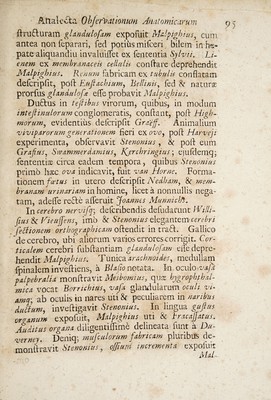 Analecta Observationum Anatomicarum 95
structuram glandulosam exposuit Malpighius, cum
antea non separari, sed potiùs misceri bilem in he-
pate aliquandiu invaluisset ex sententia Sylvii. Li-
enem ex membranaceis cellulis constare deprehendit
Malpighius. Renum fabricam ex tubulis constatam
descripsit, post Eustachium, Bellinis, sed & naturæ
prorsus glandulosæ esse probavit Malpighius.
Ductus in testibus virorum, quibus, in modum
intestinulorum conglomeratis, constant, post High-
morum, evidentiùs descripsit Graeff. Animalium
viviparorum generationem fieri ex ovo, post Harveji
experimenta, observavit Stenonius, & post eum
Grafius, Swammerdamius, Kerchringius; ejusdemq;
sententiæ circa eadem tempora, quibus Stenonius
primò hæc ova indicavit, fuit van Horne. Forma-
tionem fœtus in utero descripsit Nedham, & mem-
branam urinariam in homine, licet à nonnullis nega-
tam, adesse rectè asseruit Joannes Munnicks.
In cerebro nervisq; describendis desudarunt Willi-
sius & Vieussens, imò & Stenonius elegantem cerebri
sectionem orthographicam ostendit in tract. Gallico
de cerebro, ubi aliorum varios errores corrigit. Cor-
ticalem cerebri substantiam glandulosam esse depre-
hendit Malpighius. Tunica arachnoides, medullam
spinalem investiens, à Blasio notata. In oculo vasa
palpebralia monstravit Meibomius, quæ hygrophthal-
mica vocat Borrichius, vasa glandularum oculi vi-
amq; ab oculis in nares uti & peculiarem in naribus
ductum, investigavit Stenonius. In lingua gustus
organum exposuit, Malpighius uti & Fracassatus.
Auditus organa diligentissimè delineata sunt à Du-
verney. Deniq; musculorum fabricam pluribus de-
monstravit Stenonius, ossium incrementa exposuit
Mal-